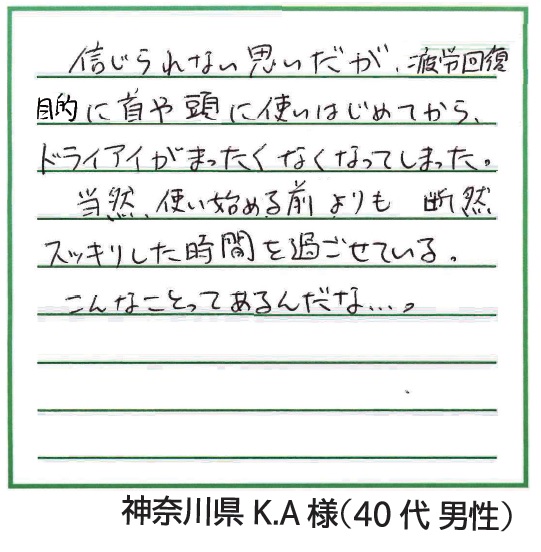 信じられない思いだが、疲労回復
目的に首や頭に使いはじめてから、
ドライアイがまったくなくなってしまった。
当然、使い始める前よりも 断然
スッキリした時間を過ごせている。
こんなことってあるんだな…。
神奈川県 K.A 様（40 代 男性）